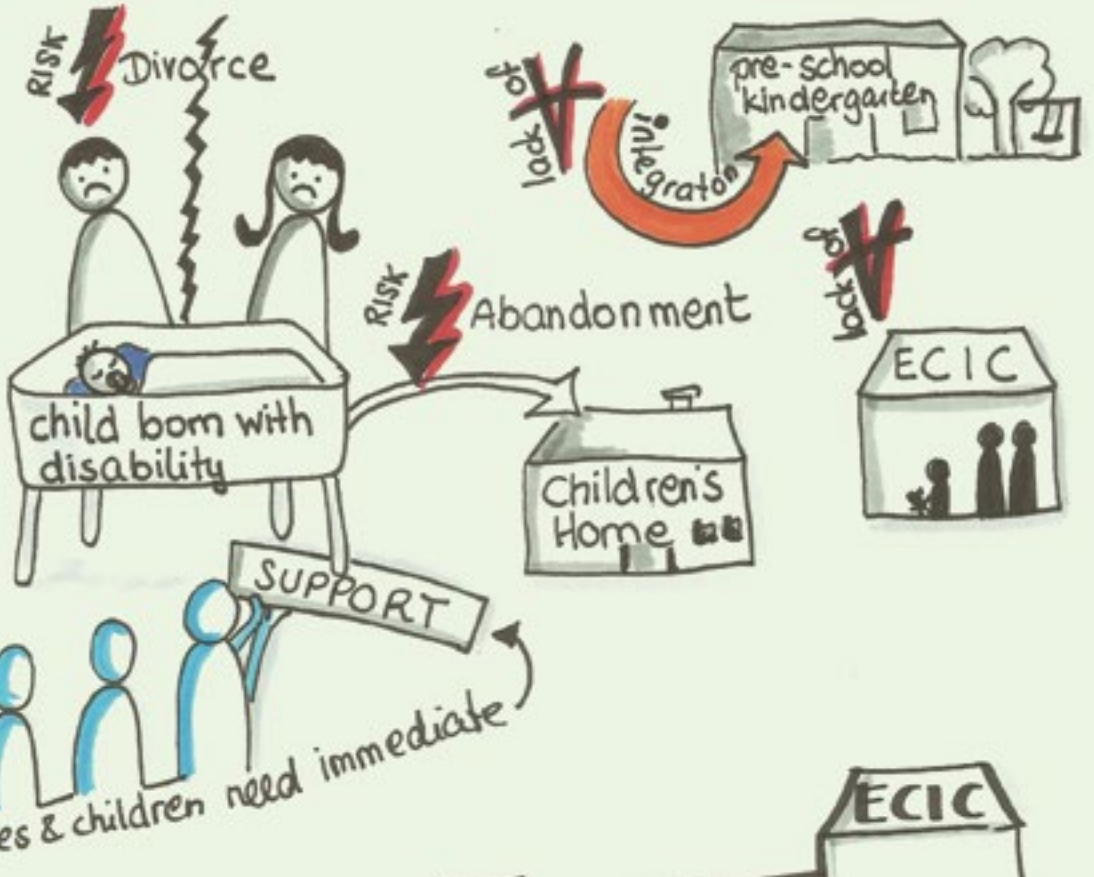 RISK
Divorce
lack of
integraton
pre-school
kindergarten
RISK
Abandonment
lack of
ECIC
child born with
disability
Children's
Home
SUPPORT
es & children need immediate
ECIC